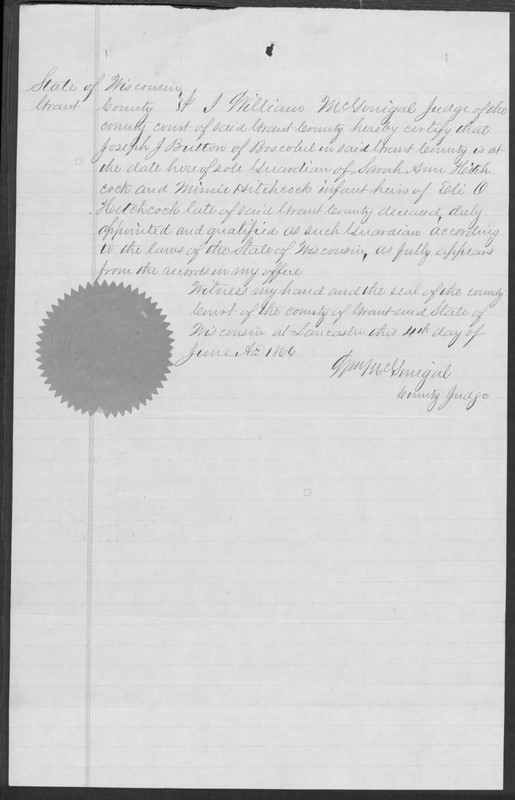 State of Wisconsin
Grant County SS I William McGonigal Judge of the
county court of said Grant County hereby certify that
Joseph J Button of Boscobel in said Grant County is at
the date here of sole Guardian of Sarah Ann Hitch
cock and Minnie Hitchcock infant heirs of Eli O
Hitchcock late of said Grant County deceased, duly
appointed and qualified as such Guardian according
to the laws of the State of Wisconsin, as fully appears
from the records in my office
Witness my hand and the seal of the county
Court of the county of Grant and State of
Wisconsin at Lancaster this 4th day of
June AD 1866
Wm McGonigal
County Judge